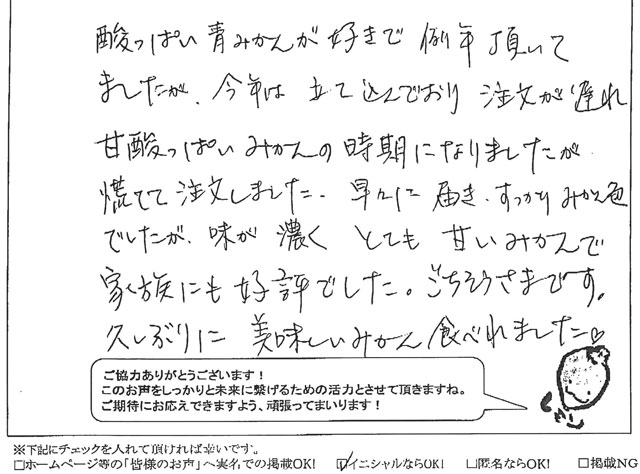 酸っぱい青みかんが好きで例年頂いて
ましたが、今年は立て込んでおり注文が遅れ
甘酸っぱいみかんの時期になりましたが
慌てて注文しました。早々に届き、すっかりみかん色
でしたが、味が濃くとても甘いみかんで
家族にも好評でした。ごちそうさまです。
久しぶりに美味しいみかん食べれました♡
ご協力ありがとうございます！
このお声をしっかりと未来に繋げるための活力とさせて頂きますね。
ご期待にお応えできますよう、頑張ってまいります！
※下記にチェックを入れて頂ければ幸いです。
□ホームページ等の「皆様のお声」へ実名での掲載OK! ☑イニシャルならOK! □匿名ならOK! □掲載NG